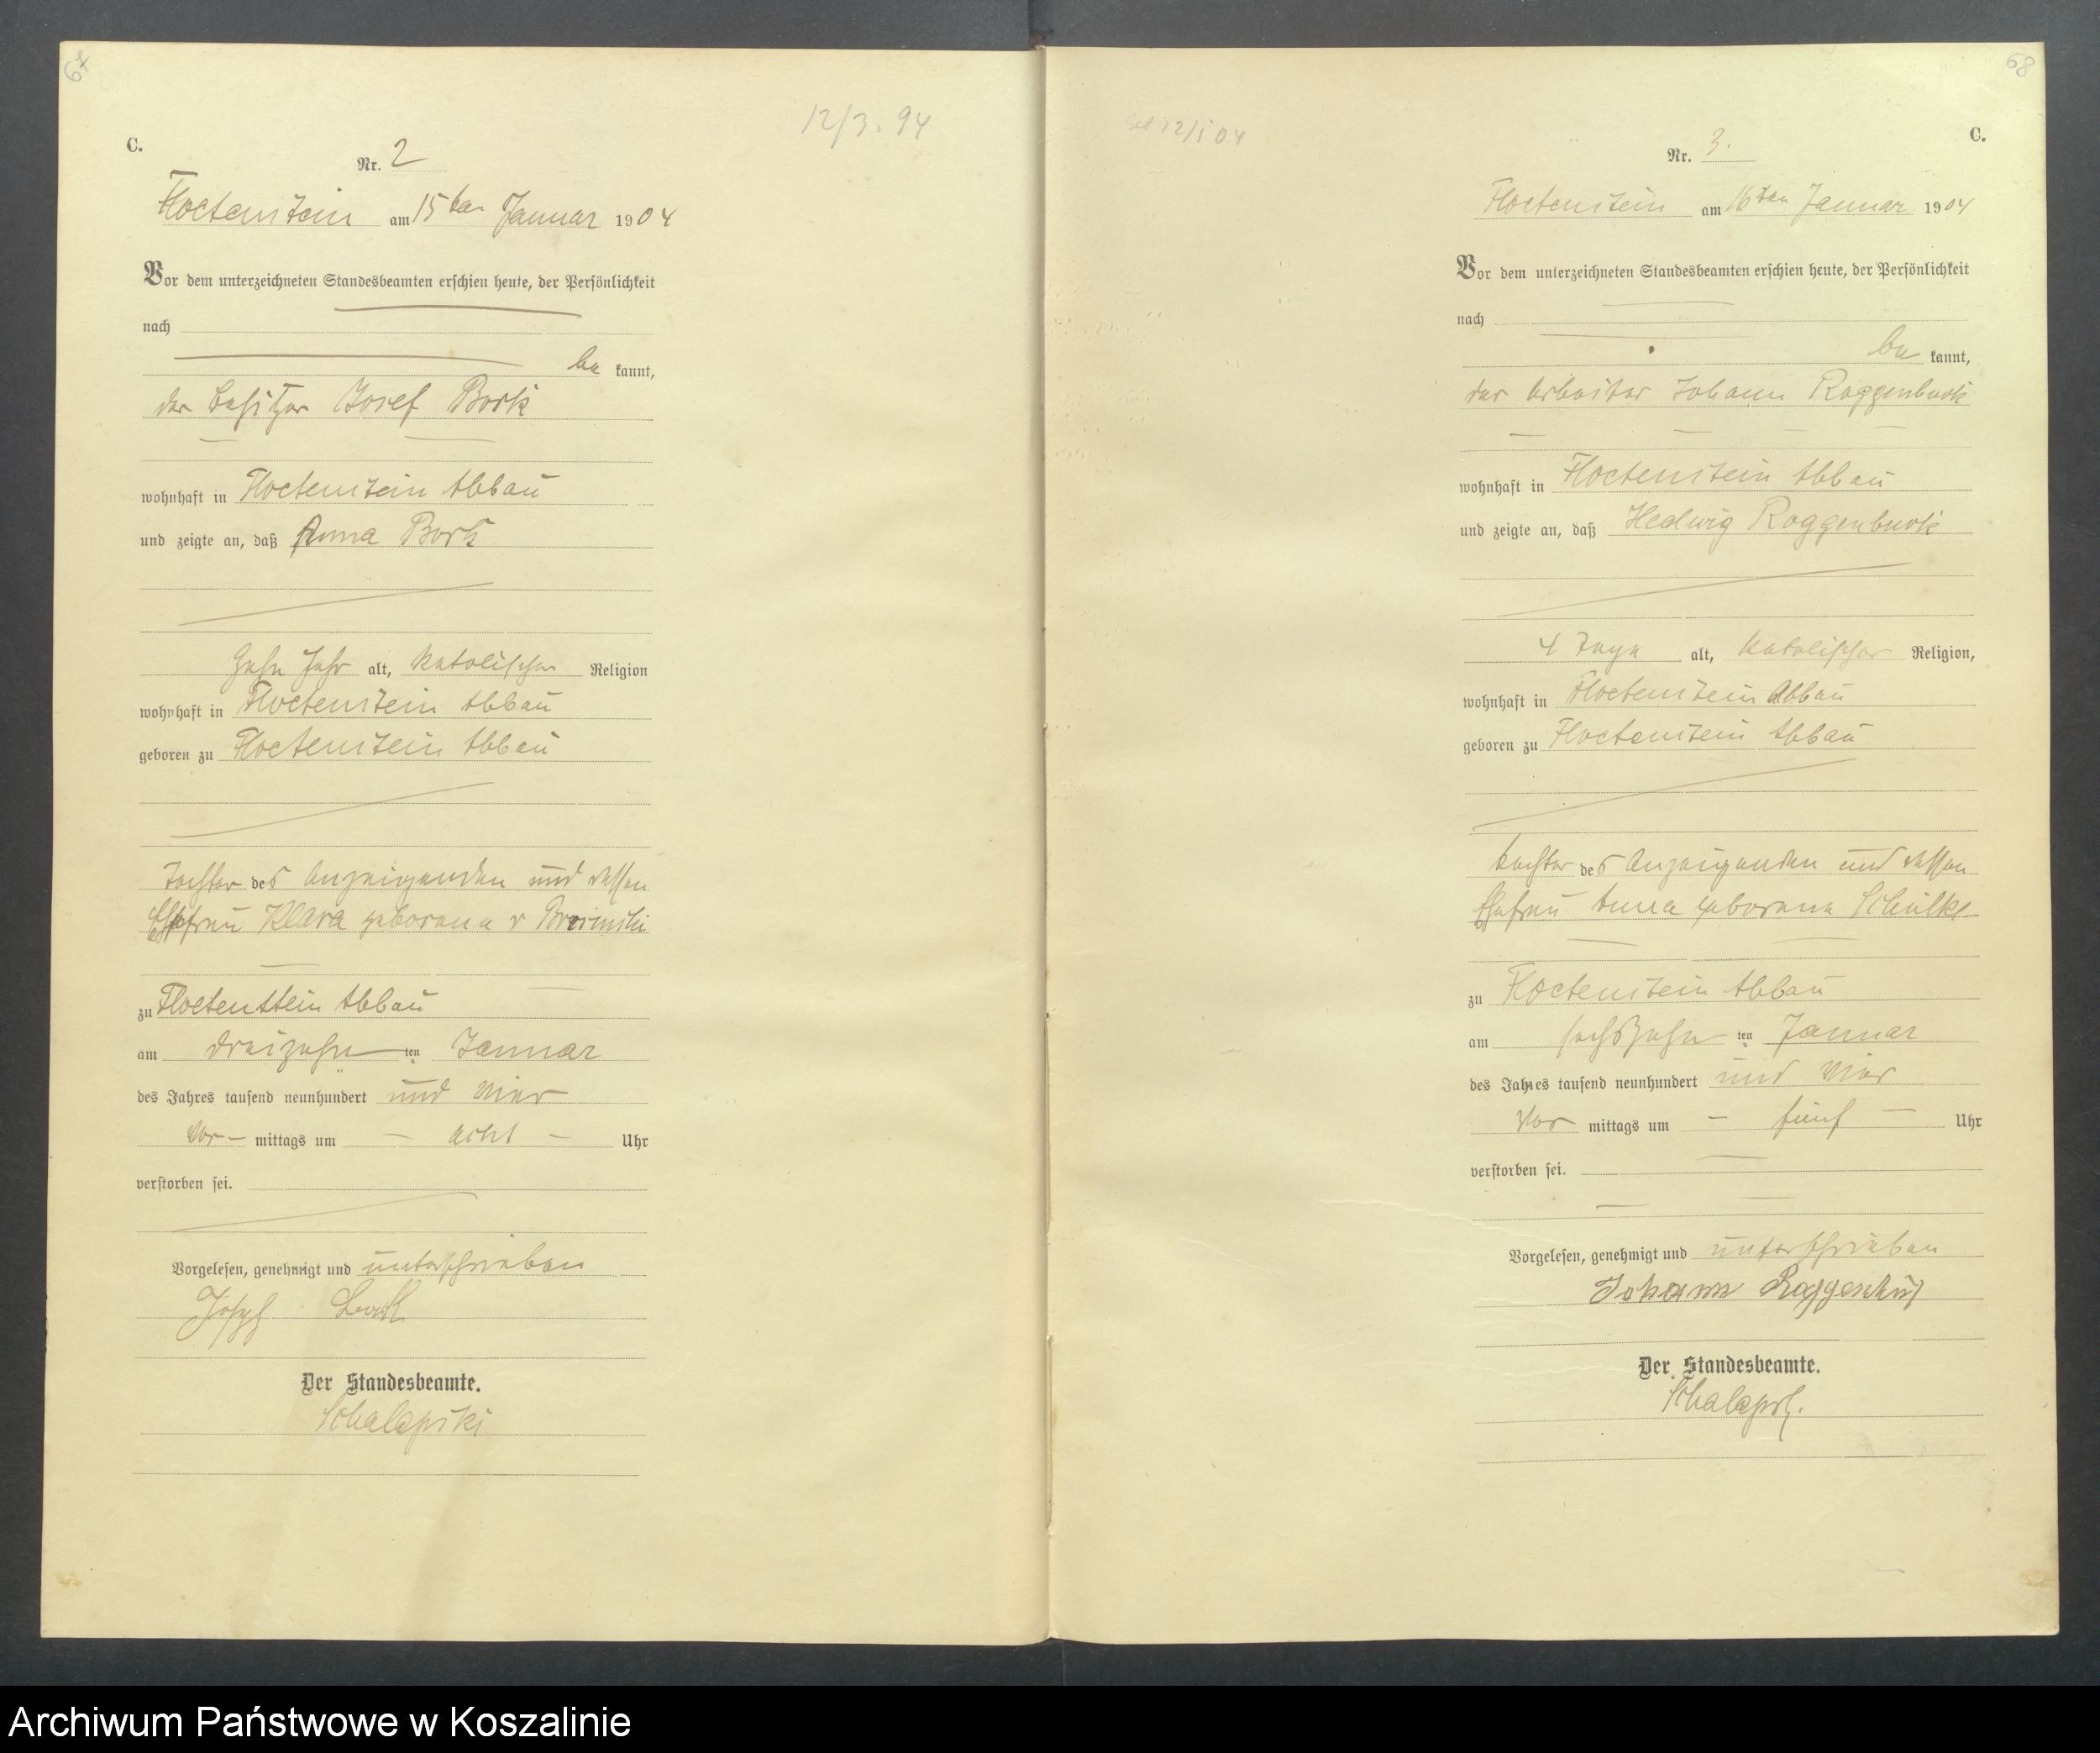 67
12/3. 94
C.
Nr. 2
Floetenstein am 15ten Januar 1904
Vor dem unterzeichneten Standesbeamten erschien heute, der Persönlichkeit
nach
be kannt,
der Besitzer Josef Bork
wohnhaft in Floetenstein Abbau
und zeigte an, daß Anna Bork
Zehn Jahr alt, katolischer Religion
wohnhaft in Floetenstein Abbau
geboren zu Floetenstein Abbau
Tochter des Anzeigenden und dessen
Ehefrau Klara geborene v
zu Floetenstein Abbau
am dreizehn ten Januar
des Jahres tausend neunhundert und vier
Vor- mittags um – acht – Uhr
verstorben sei.
Vorgelesen, genehmigt und unterschrieben
Joseph
Der Standesbeamte.
Schalapski
68
12/1 04
C.
Nr. 3.
Floetenstein am 16ten Januar 1904
Vor dem unterzeichneten Standesbeamten erschien heute, der Persönlichkeit
nach
be kannt,
der Arbeiter Johann Roggenbuck
wohnhaft in Floetenstein Abbau
und zeigte an, daß Hedwig Roggenbuck
4 Tage alt, katolischer Religion,
wohnhaft in Floetenstein Abbau
geboren zu Floetenstein Abbau
Tochter des Anzeigenden und dessen
Ehefrau Anna geborene Schülke
zu Floetenstein Abbau
am sechszehn ten Januar
des Jahres tausend neunhundert und vier
Vor mittags um – fünf – Uhr
verstorben sei.
Vorgelesen, genehmigt und unterschrieben
Johann
Der Standesbeamte.
Archiwum Państwowe w Koszalinie